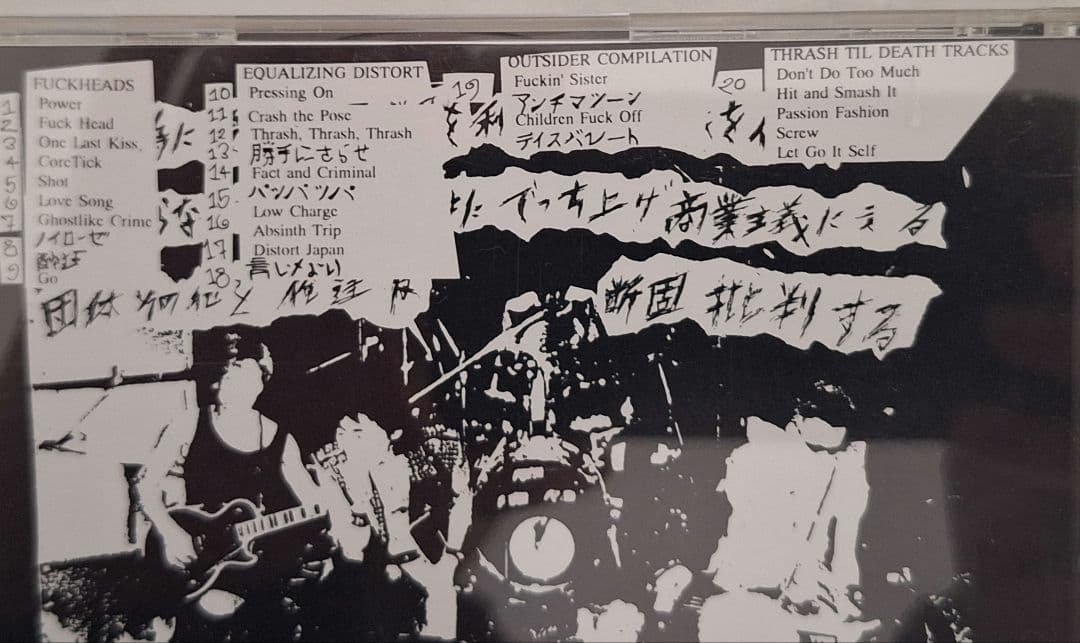 FUCKHEADS
1 Power
2 Fuck Head
3 One Last Kiss,
4 CoreTick
5 Shot
6 Love Song
7 Ghostlike Crime
8 ノイローゼ
9
Go
EQUALIZING DISTORT
10 Pressing On
11 Crash the Pose
12 Thrash, Thrash, Thrash
13 勝手にさらせ
14 Fact and Criminal
15 パッパッパ
16 Low Charge
Absinth Trip
17 Distort Japan
18
19
OUTSIDER COMPILATION
Fuckin' Sister
アンチマシーン
Children Fuck Off
ディスパレート
20
THRASH TIL DEATH TRACKS
Don't Do Too Much
Hit and Smash It
Passion Fashion
Screw
Let Go It Self
でっち上げ 商業主義に
団体
断固 批判する